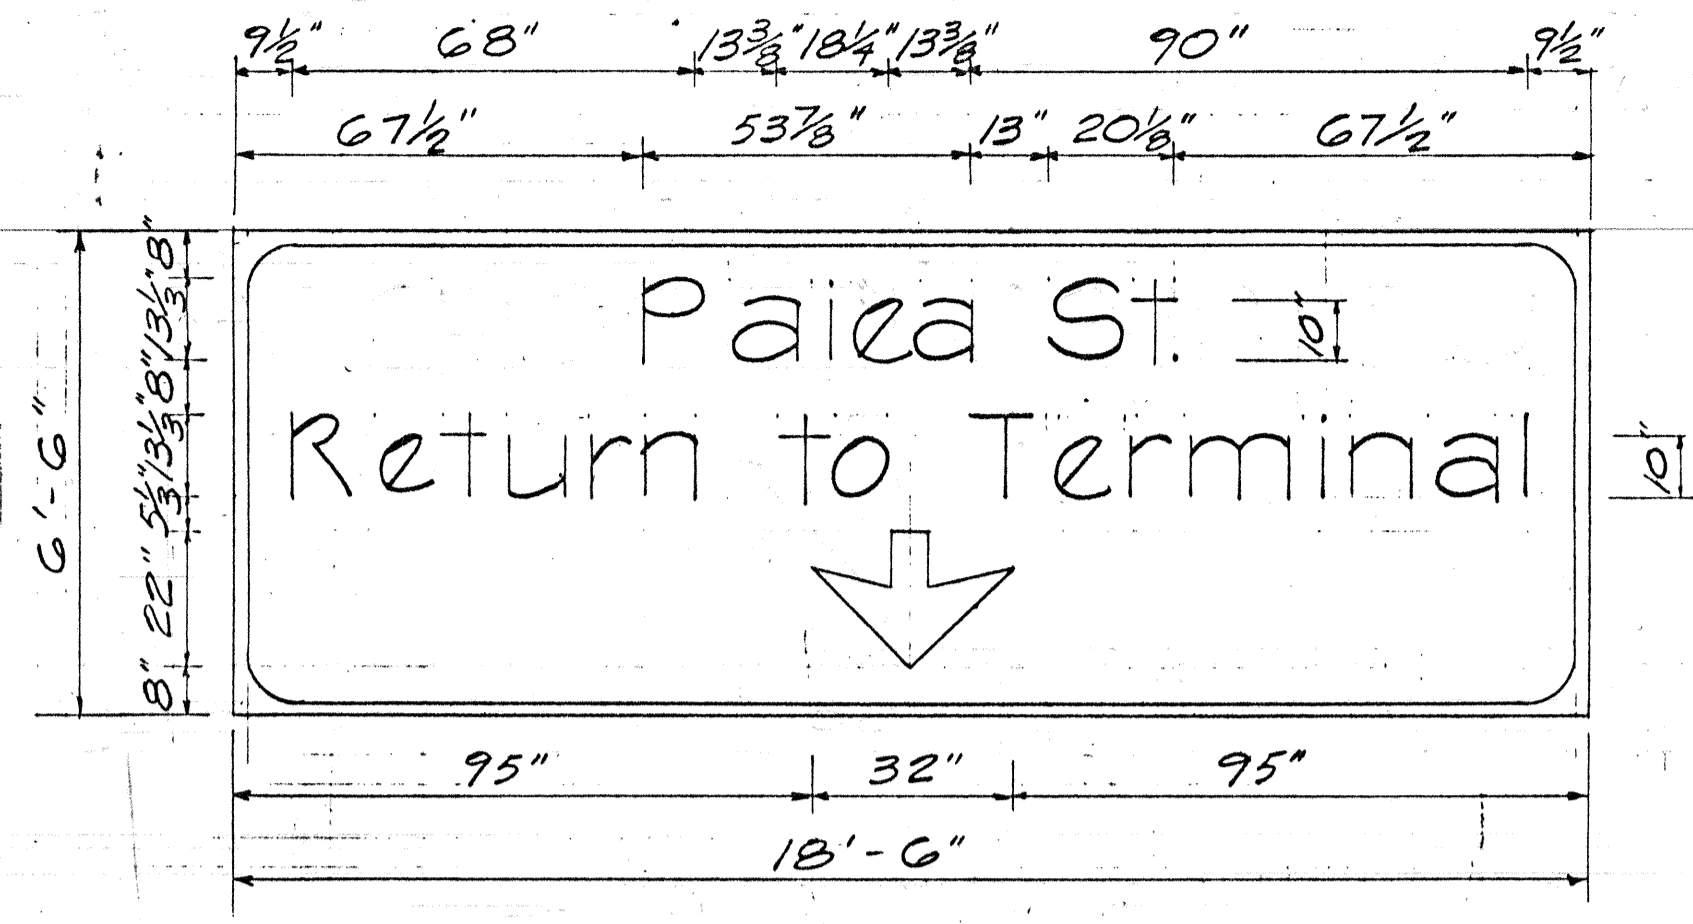 9½" 68" 13⅜" 18¼" 13⅜" 90" 9½"
67½" 53⅞" 13" 20⅛" 67½"
8" 13⅓" 8" 13⅓" 5⅓" 22" 8"
6'-6"
Paiea St.
10"
Return to Terminal
10"
95" 32" 95"
18'-6"